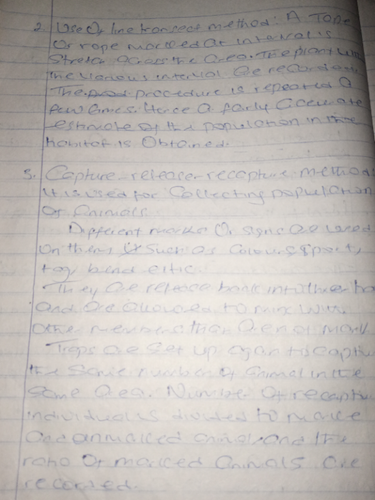 2. Use of line transect method: A Tape
Or rope marked at intervals is
Stretch across the area. The plant with
the various interval are recorded.
The procedure is repeated a
few times. Hence a fairly accurate
estimate of the population in the
habitat is Obtained.
3. Capture-release-recapture method:
It is used for Collecting population
Of Animals
Different marks Or signs are used
On them Such as Colour, spot,
tag, band etc.
They are release back into their ha
and are allowed to mix with
Other members that are not mark
Traps are set up again to captu
the same number of animal in the
same area. Number of recaptu
individuals is divided to marke
and unmarked animal and the
ratio Of marked animals are
recorded.